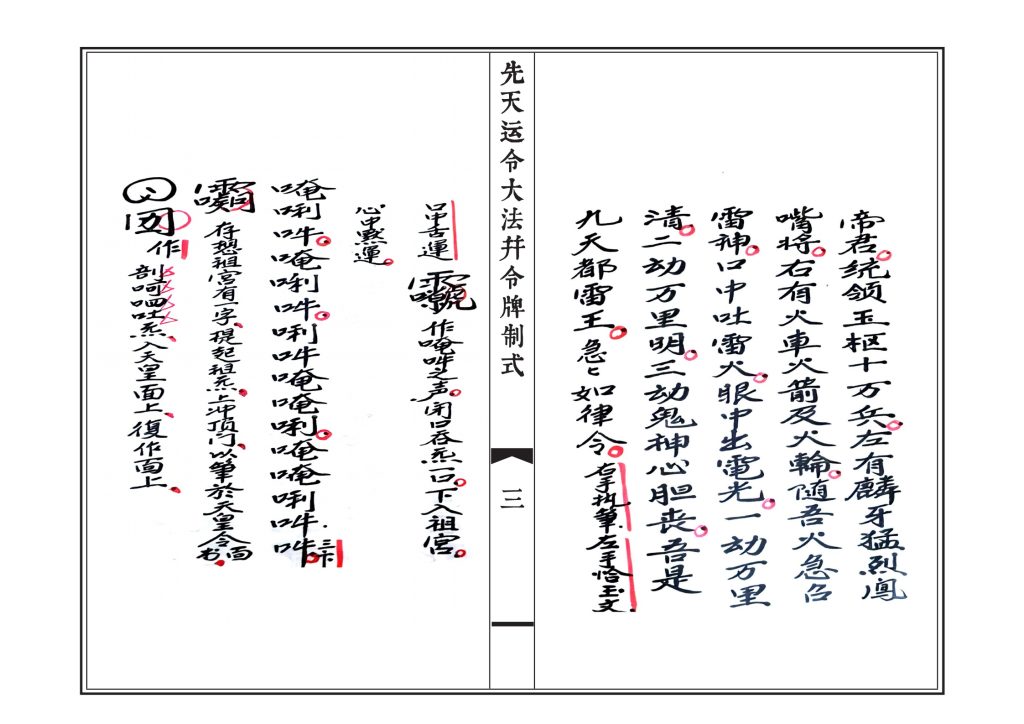 帝君。统领玉枢十万兵。左有麟牙猛烈鳳
嘴将。右有火車火箭及火輪。随吾火急召
雷神。口中吐雷火。眼中出電光。一动万里
清。二动万里明。三动鬼神心胆丧。吾是
九天都雷王。急々如律令。右手执筆.左手恰玉文.
先天运令大法并令牌制式
三
口中舌運 作唵吽之声。闭口吞炁一口。下入祖宫。
心中默運。
唵唎吽。唵唎吽。唎吽唵唵唎。唵唵唎吽.吽。三卡
存想祖宫有一字、提起祖炁、上冲顶门、以筆於天皇令面书、
作 剖呵四吐炁、入天皇面上、復作面上、